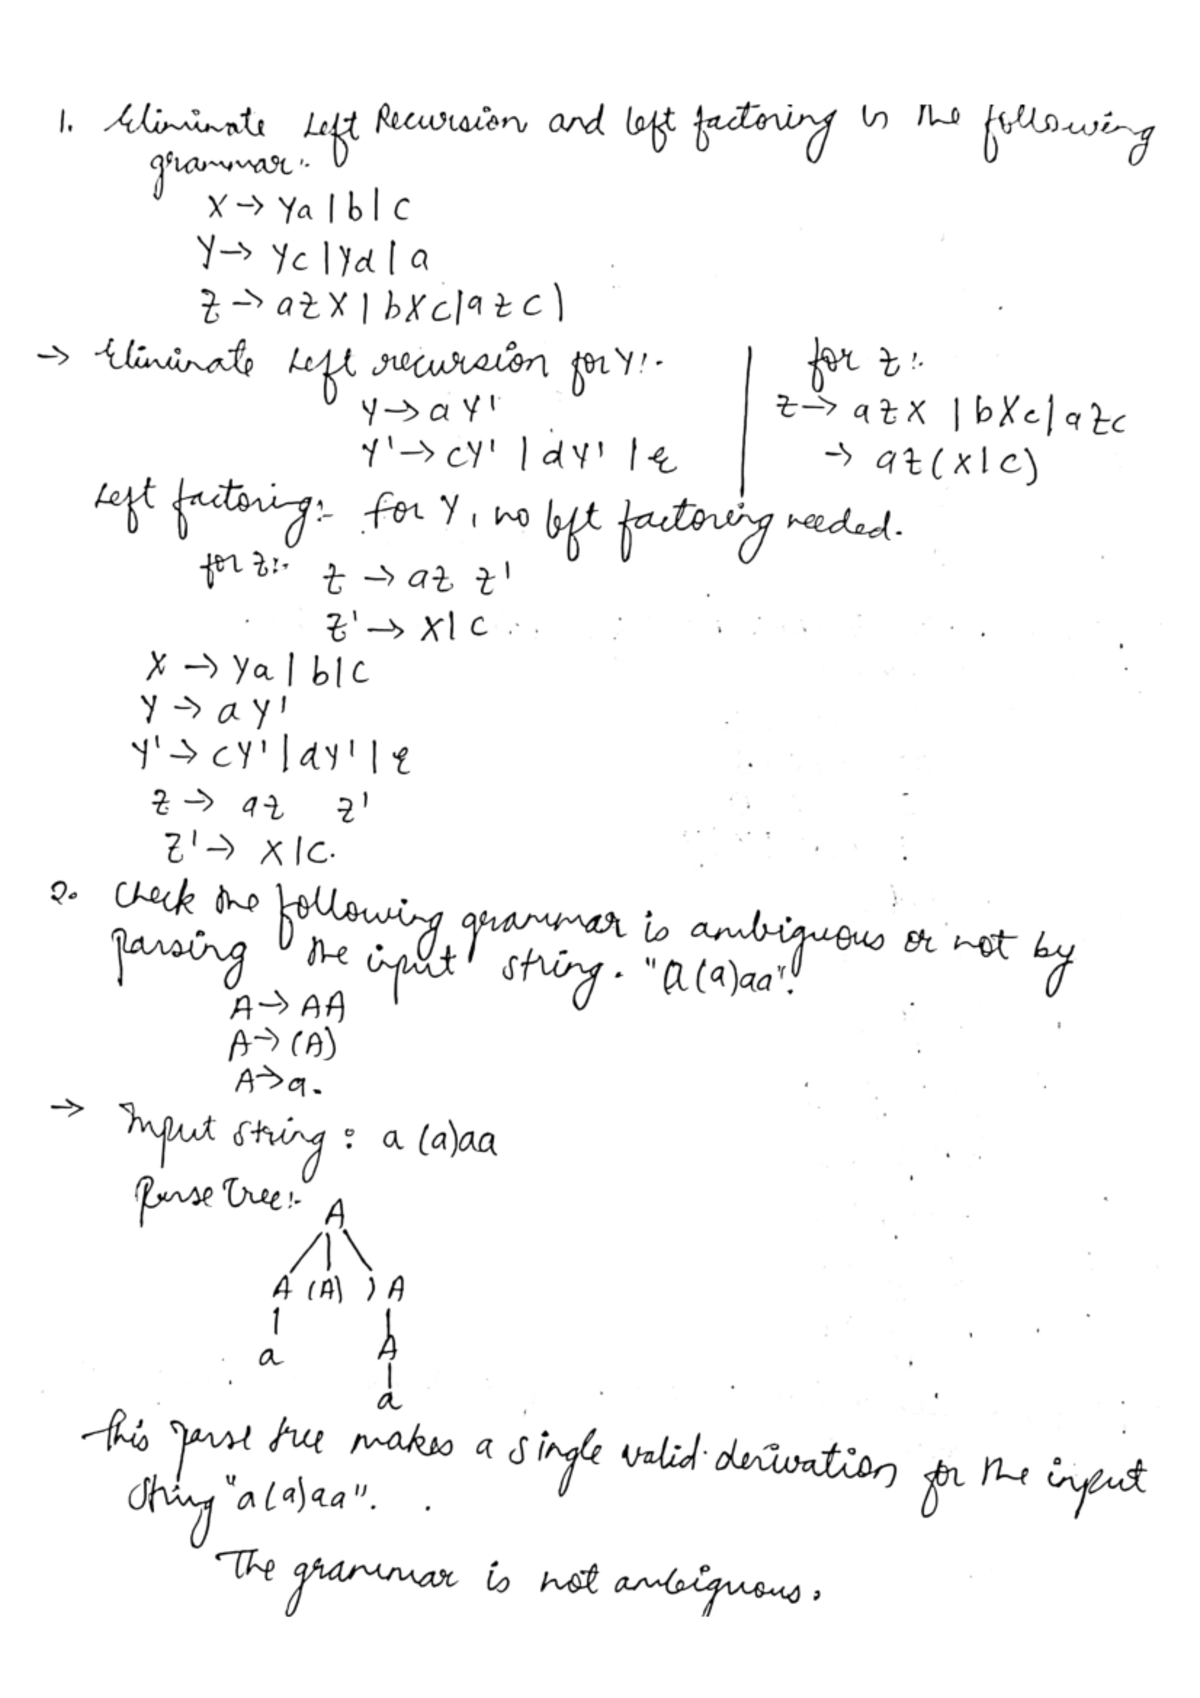 1. Eliminate Left Recursion and left factoring in the following
grammar:-
X → Ya | b | c
Y → Yc | Yd | a
Z → aZX | bXc | aZc |
→ Eliminate Left recursion for Y:-
Y → aY'
Y' → cY' | dY' | ε
for Z:-
Z → aZX | bXc | aZc
→ aZ(X | c)
Left factoring:- for Y, no left factoring needed.
for Z:- Z → aZ Z'
Z' → X | c
X → Ya | b | c
Y → aY'
Y' → cY' | dY' | ε
Z → aZ Z'
Z' → X | c.
2. Check the following grammar is ambiguous or not by
parsing the input string. "a(a)aa".
A → AA
A → (A)
A → a.
→ Input string : a (a)aa
Parse Tree:-
A
A (A) ) A
a A
a
This parse tree makes a single valid derivation for the input
string "a(a)aa".
The grammar is not ambiguous.